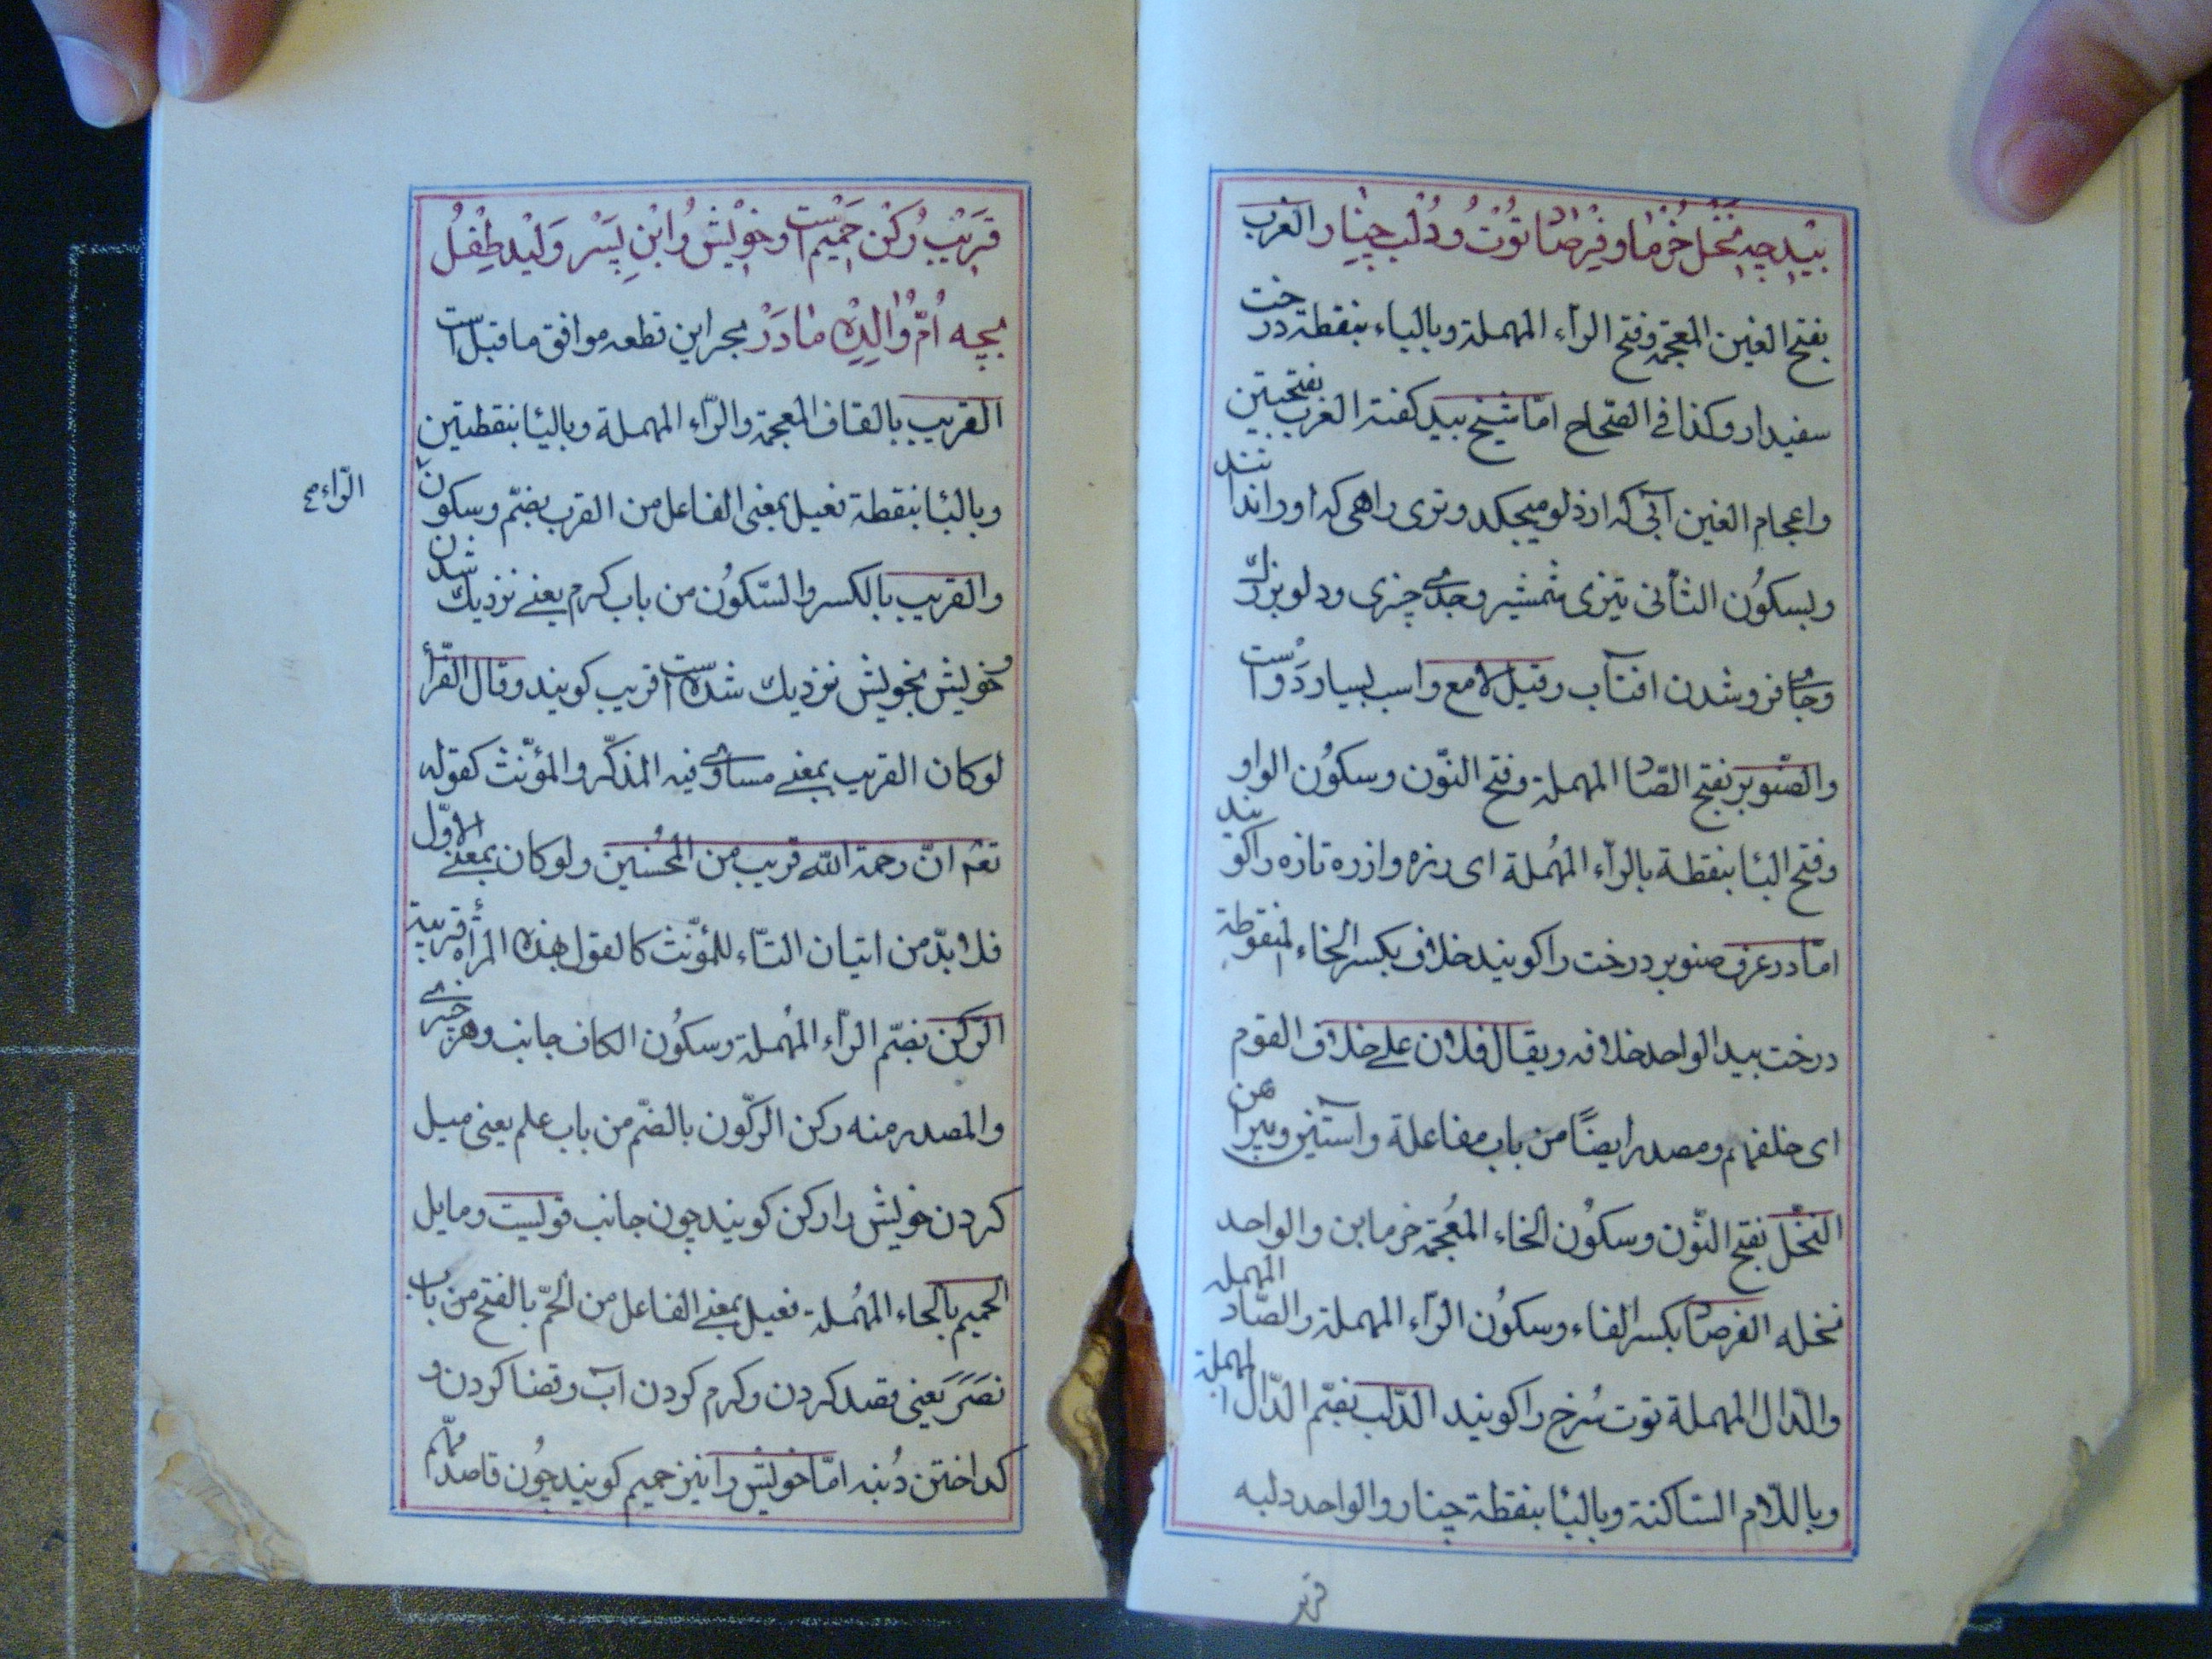 بید چه نخل خرما و فرصاد توت و دلب چنار الغرب
بفتح الغین المعجمة وفتح الرآء المهملة وبالباء بنقطة درخت
سفیدار وکذا فی الصّحاح امّا شیخ بید کفته الغرب بفتحتین
واعجام الغین آبی که از دلو میچکد وتری راهی که او را اندا تند
وبسکون الثانی تیزی شمشیر وجدّی چیزی ودلو بزرک
وجای فرو شدن افتاب وقیل لامع واسب بسیار دوست
والصّنوبر بفتح الصّاد المهملة وفتح النّون وسکون الواو
وفتح البا بنقطة بالرآء المهملة ای رزه واز ره تازه را کویند
امّا در عرف صنوبر درخت را کویند خلاف بکسر الخاء المنقوطة
درخت بید الواحد خلافه ویقال فلان علی خلاف القوم
ای خلفهم ومصدر ایضًا من باب مفاعلة واستین وپیراهن
النخل بفتح النّون وسکون الخاء المعجمة خرما بن والواحد
نخله الفرصاد بکسر الفاء وسکون الرآء المهملة والصّاد المهمله
والدّال المهملة توت سرخ را کویند الدّلب بضمّ الدّال المهملة
وباللّام السّاکنة وبالبا بنقطة چنار والواحد دلبه
قریب
قریب رکن حمیم است وخویش و ابن پسر ولید طفل
بچه امّ و والده مادر بحر این قطعه موافق ما قبل است
القریب بالقاف المعجمة والرّاء المهملة وبالیا بنقطتین
وبالبا بنقطة فعیل بمعنی الفاعل من القرب بضمّ وسکون
الرّاء
والقریب بالکسر والسّکون من باب کرم یعنی نزدیک شدن
خویش بخویش نزدیک شده است قریب کویند وقال الفرّأ
لو کان القریب بمعنی مساوی فیه المذکّر والمؤنّث کقوله
تعم انّ رحمة الله قریب من المحسنین ولو کان بمعنی الاوّل
فلا بدّ من اتیان التّاء للمؤنّث کالقول هذه المرأة قریبة
الرّکن بضمّ الرآء المهملة وسکون الکاف جانب وهر چیزی
والمصدر منه رکن الرکّون بالضّم من باب علم یعنی میل
کردن خویش را رکن کویند چون جانب قویست ومایل
الحمیم بالحاء المهملة فعیل بمعنی الفاعل من الحمّ بالفتح من باب
نصر یعنی قصد کردن وکرم کردن آب وقضا کردن و
کداختن دنبه امّا خویش را نیز حمیم کویند چون قاصد مهمّ